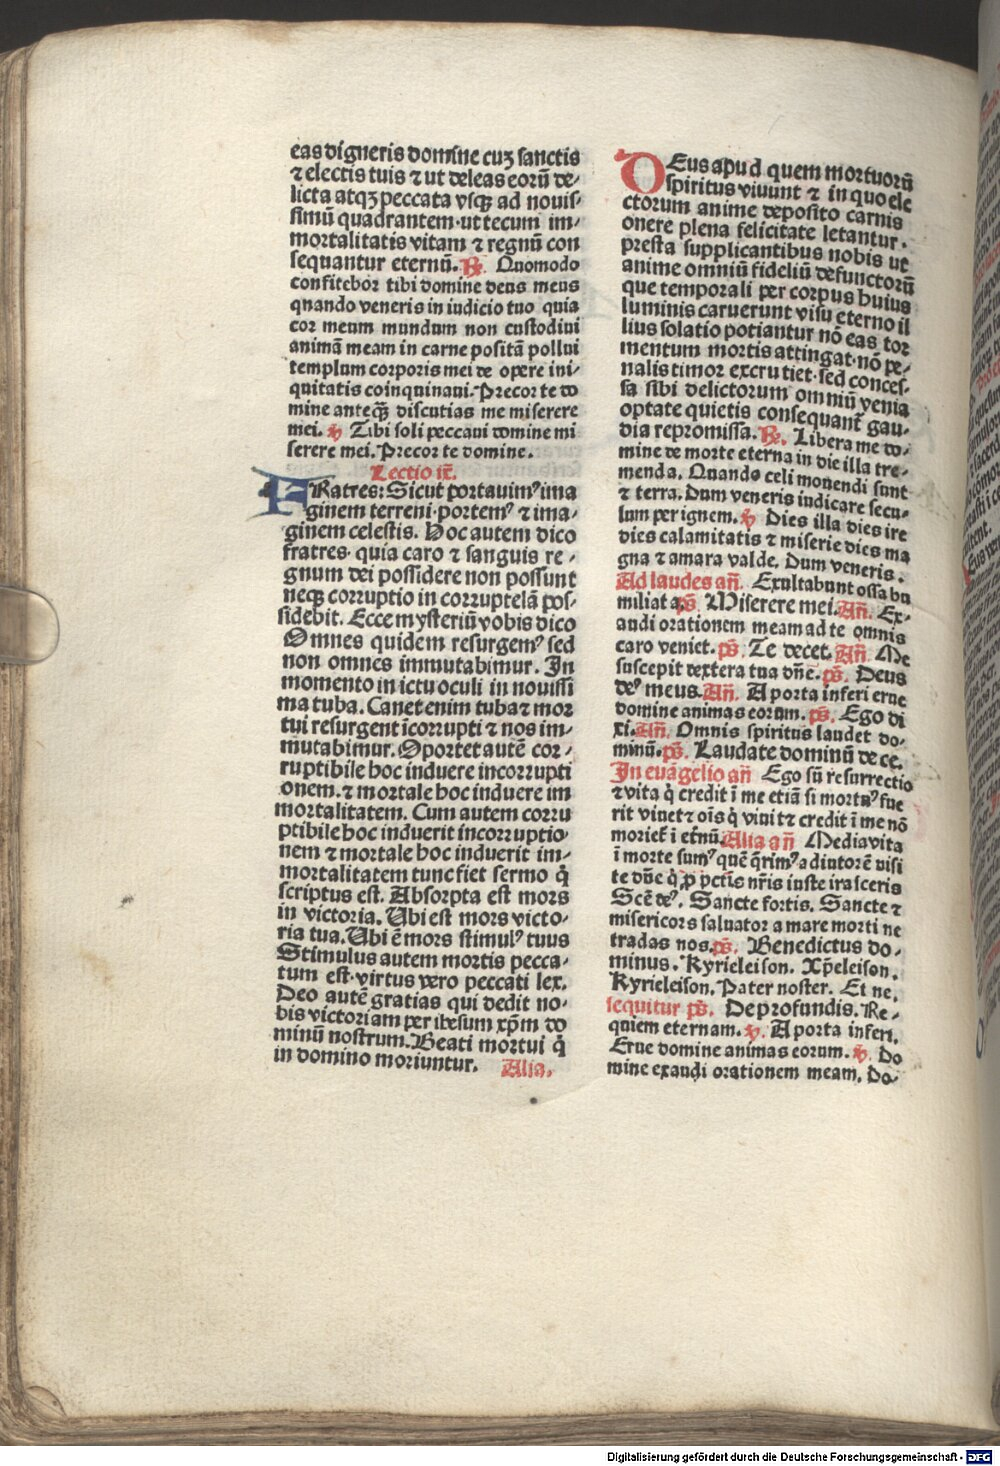 eas digneris domine cuʒ sanctis
⁊ electis tuis ⁊ ut deleas eorū de-
licta atqʒ peccata vsqʒ ad nouis-
simū quadrantem·ut tecum im-
mortalitatis vitam ⁊ regnū con
sequantur eternū. ℟. Quomodo
confitebor tibi domine deus meus
quando veneris in iudicio tuo quia
cor meum mundum non custodiui
animā meam in carne positā pollui
templum corporis mei de opere ini-
quitatis coinquinaui. Precor te do
mine anteqꝫ discutias me miserere
mei. ℣ Tibi soli peccaui domine mi
serere mei. Precor te domine.
Lectio ix̄.
FRatres: Sicut portauimꝰ ima
ginem terreni·portemꝰ ⁊ ima-
ginem celestis. Hoc autem dico
fratres· quia caro ⁊ sanguis re-
gnum dei possidere non possunt
neqꝫ corruptio in corruptelā pos-
sidebit. Ecce mysteriū vobis dico
Omnes quidem resurgemꝰ sed
non omnes immutabimur. In
momento in ictu oculi in nouissi
ma tuba. Canet enim tuba ⁊ mor
tui resurgent īcorrupti ⁊ nos im-
mutabimur. Oportet autē cor-
ruptibile hoc induere incorrupti
onem. ⁊ mortale hoc induere im
mortalitatem. Cum autem corru
ptibile hoc induerit incorruptio-
nem ⁊ mortale hoc induerit im-
mortalitatem tunc fiet sermo q̇
scriptus est. Absorpta est mors
in victoria. Ubi est mors victo-
ria tua. Ubi ē mors stimulꝰ tuus
Stimulus autem mortis pecca-
tum est·virtus vero peccati lex.
Deo autē gratias qui dedit no-
bis victoriam per ihesum xp̄m do
minū nostrum. Beati mortui q̇
in domino moriuntur. Alia.
DEus apud quem mortuorū
spiritus viuunt ⁊ in quo ele
ctorum anime deposito carnis
onere plena felicitate letantur.
presta supplicantibus nobis ut
anime omniū fideliū defunctorū
que temporali per corpus huius
luminis caruerunt visu eterno il
lius solatio potiantur nō eas tor
mentum mortis attingat·nō pe-
nalis timor excrutiet·sed conces-
sa sibi delictorum omniū venia
optate quietis consequant᷑ gau-
dia repromissa. ℟. Libera me do-
mine de morte eterna in die illa tre-
menda. Quando celi mouendi sunt
⁊ terra. Dum veneris iudicare secu-
lum per ignem. ℣ Dies illa dies ire
dies calamitatis ⁊ miserie dies ma
gna ⁊ amara valde. Dum veneris.
Ad laudes an̄. Exultabunt ossa hu
miliata. ps̄. Miserere mei. An̄. Ex-
audi orationem meam ad te omnis
caro veniet. ps̄. Te decet. An̄. Me
suscepit dextera tua dn̄e. ps̄. Deus
deꝰ meus. An̄. A porta inferi erue
domine animas eorum. ps̄. Ego di
xi. An̄. Omnis spiritus laudet do-
minū. ps̄. Laudate dominū de ce.
In euāgelio an̄ Ego sū resurrectio
⁊ vita q̇ credit ī me etiā si mortuꝰ fue
rit viuet ⁊ oīs q̇ viuit ⁊ credit ī me nō
moriet᷑ ī et̄nū. Alia an̄ Media vita
ī morte sumꝰ quē q̄rimꝰ adiutorē nisi
te dn̄e q̇ ꝓ pctīs nr̄is iuste irasceris
Scē deꝰ. Sancte fortis. Sancte ⁊
misericors saluator amare morti ne
tradas nos. ps̄. Benedictus do-
minus. Kyrieleison. Xp̄eleison.
Kyrieleison. Pater noster. Et ne.
sequitur ps̄. De profundis. Re-
quiem eternam. ℣. A porta inferi.
Erue domine animas eorum. ℣. Do
mine exaudi orationem meam. Do-
Digitalisierung gefördert durch die Deutsche Forschungsgemeinschaft - DFG